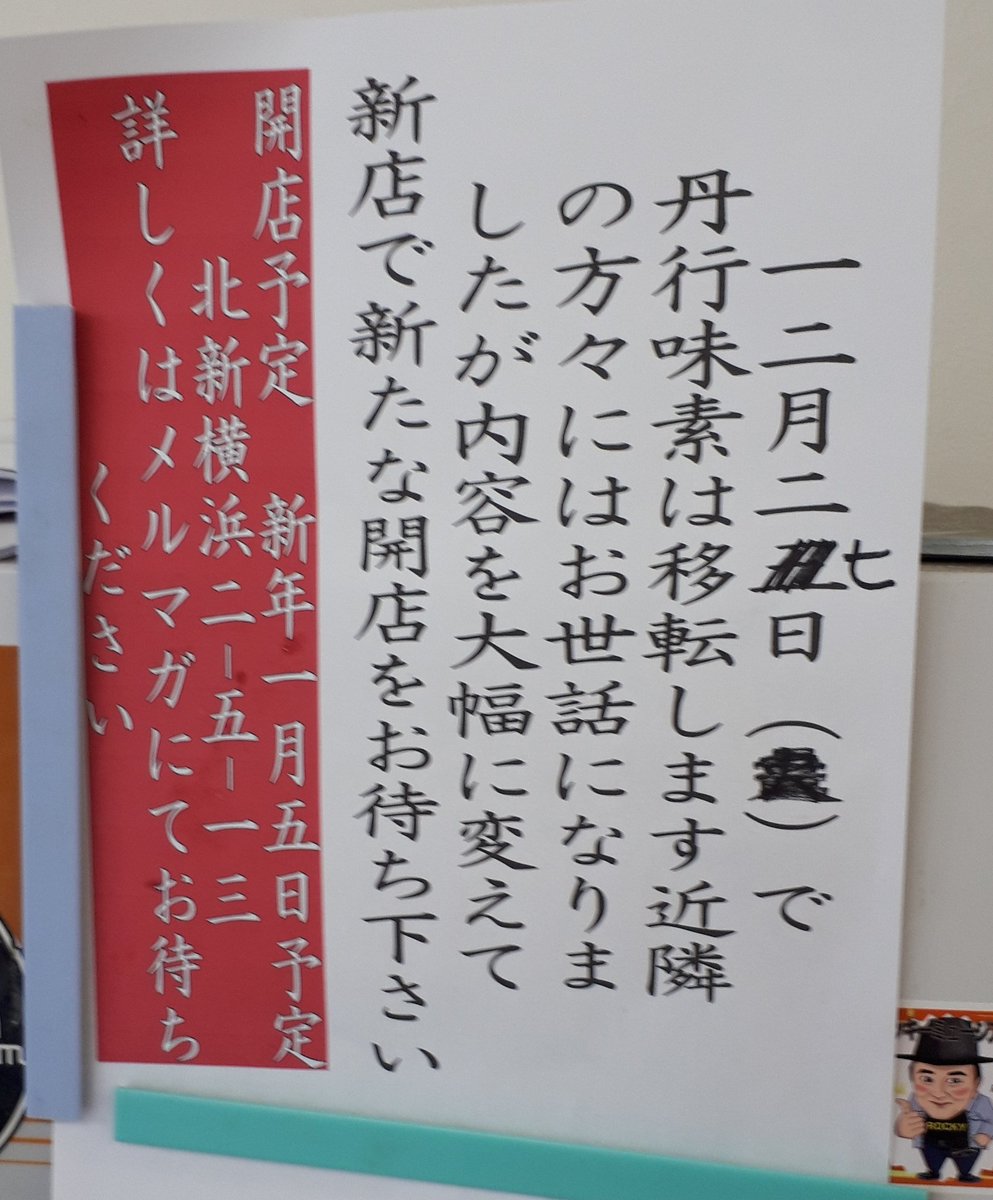 一二月二七日（）で
丹行味素は移転します近隣
の方々にはお世話になりま
したが内容を大幅に変えて
新店で新たな開店をお待ち下さい
開店予定 新年一月五日予定
北新横浜二-五-一三
詳しくはメルマガにてお待ち
ください
ROCKY